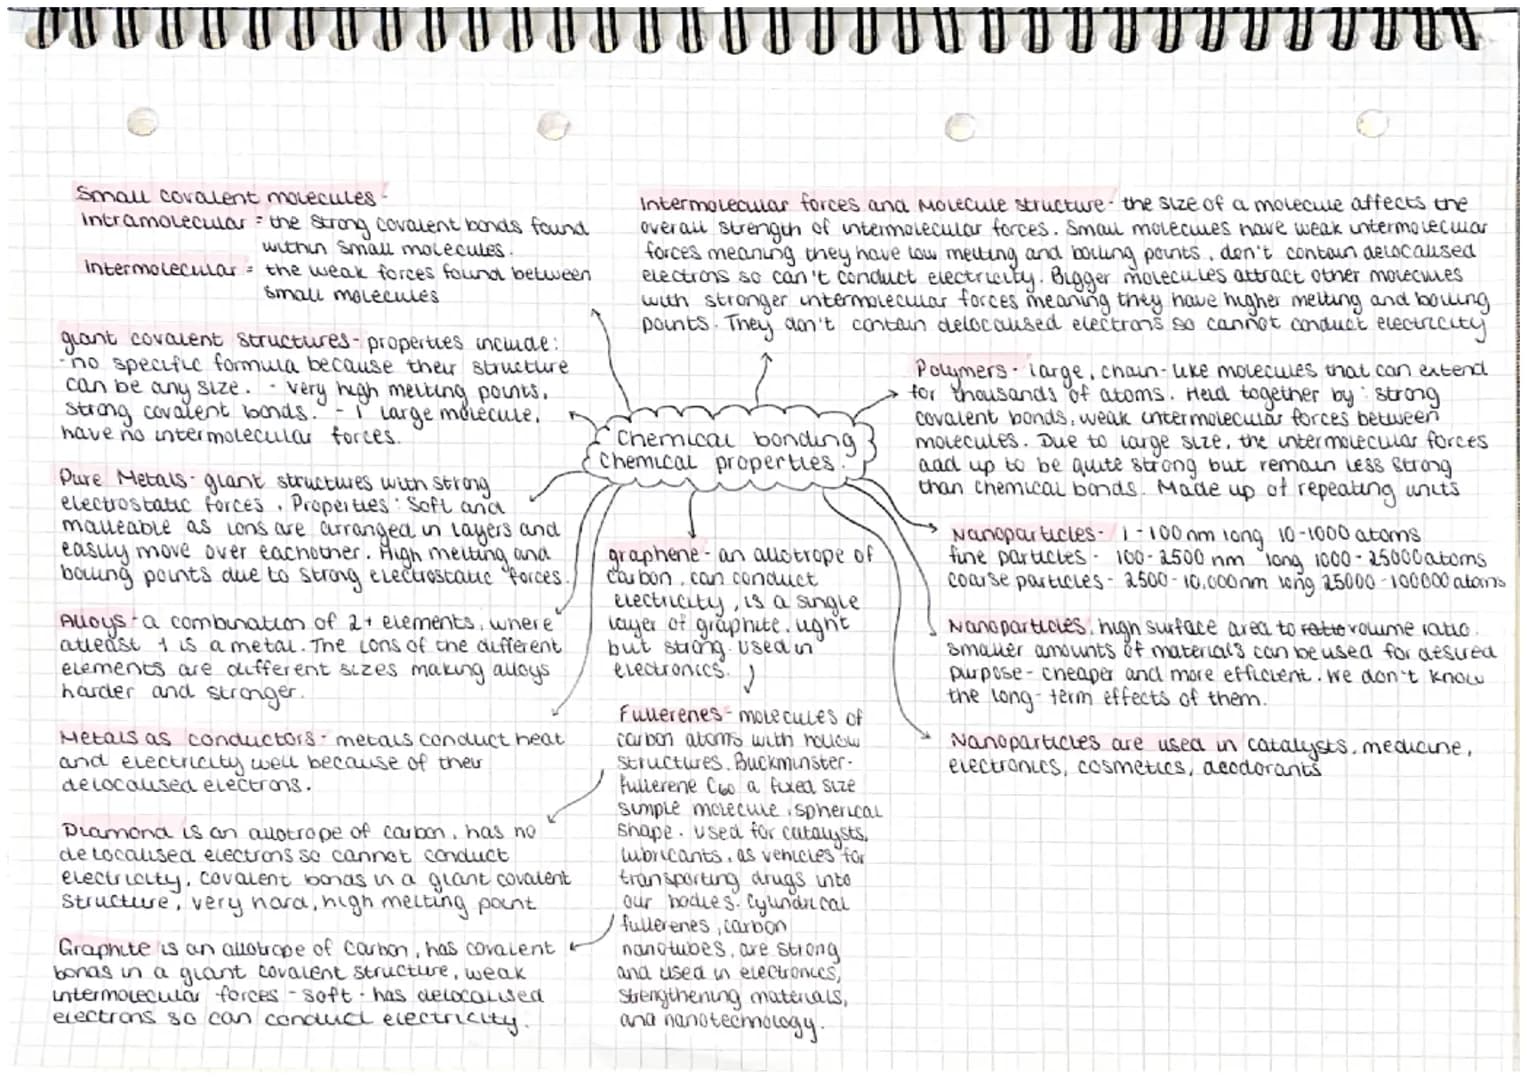 Small covalent molecules -
Intramolecular = the strong covalent bonds found
within small molecules.
Intermolecular = the weak forces found between
small molecules
giant covalent structures - properties include:
- no specific formula because their structure
can be any size. - very high melting points,
strong covalent bonds. - 1 large molecule,
have no intermolecular forces.
Pure Metals - giant structures with strong
electrostatic forces. Properties: Soft and
malleable as ions are arranged in layers and
easily move over eachother. High melting and
boiling points due to strong electrostatic forces.
Alloys - a combination of 2+ elements, where
atleast 1 is a metal. The ions of the different
elements are different sizes making alloys
harder and stronger.
Metals as conductors - metals conduct heat
and electricity well because of their
delocalised electrons.
Diamond is an allotrope of carbon, has no
delocalised electrons so cannot conduct
electricity, covalent bonds in a giant covalent
structure, very hard, high melting point
Graphite is an allotrope of carbon, has covalent
bonds in a giant covalent structure, weak
intermolecular forces - soft - has delocalised
electrons so can conduct electricity.
Chemical bonding
Chemical properties.
graphene - an allotrope of
carbon, can conduct
electricity, is a single
layer of graphite, light
but strong. used in
electronics.
Fullerenes - molecules of
carbon atoms with hollow
structures. Buckminster-
fullerene C60 a fixed size
simple molecule, spherical
shape. used for catalysts,
lubricants, as vehicles for
transporting drugs into
our bodies. Cylindrical
fullerenes, carbon
nanotubes, are strong
and used in electronics,
strengthening materials,
and nanotechnology.
Intermolecular forces and Molecule structure - the size of a molecule affects the
overall strength of intermolecular forces. Small molecules have weak intermolecular
forces meaning they have low melting and boiling points, don't contain delocalised
electrons so can't conduct electricity. Bigger molecules attract other molecules
with stronger intermolecular forces meaning they have higher melting and boiling
points. They don't contain delocalised electrons so cannot conduct electricity
Polymers - large, chain-like molecules that can extend
for thousands of atoms. Held together by: strong
covalent bonds, weak intermolecular forces between
molecules. Due to large size, the intermolecular forces
add up to be quite strong but remain less strong
than chemical bonds. Made up of repeating units
Nanoparticles - 1-100nm long 10-1000 atoms
fine particles - 100-2500 nm long 1000-25000 atoms
coarse particles - 2500-10,000nm long 25000-100000 atoms
Nanoparticles, high surface area to ratio volume ratio.
smaller amounts of materials can be used for desired
purpose - cheaper and more efficient. We don't know
the long-term effects of them.
Nanoparticles are used in catalysts, medicine,
electronics, cosmetics, deodorants